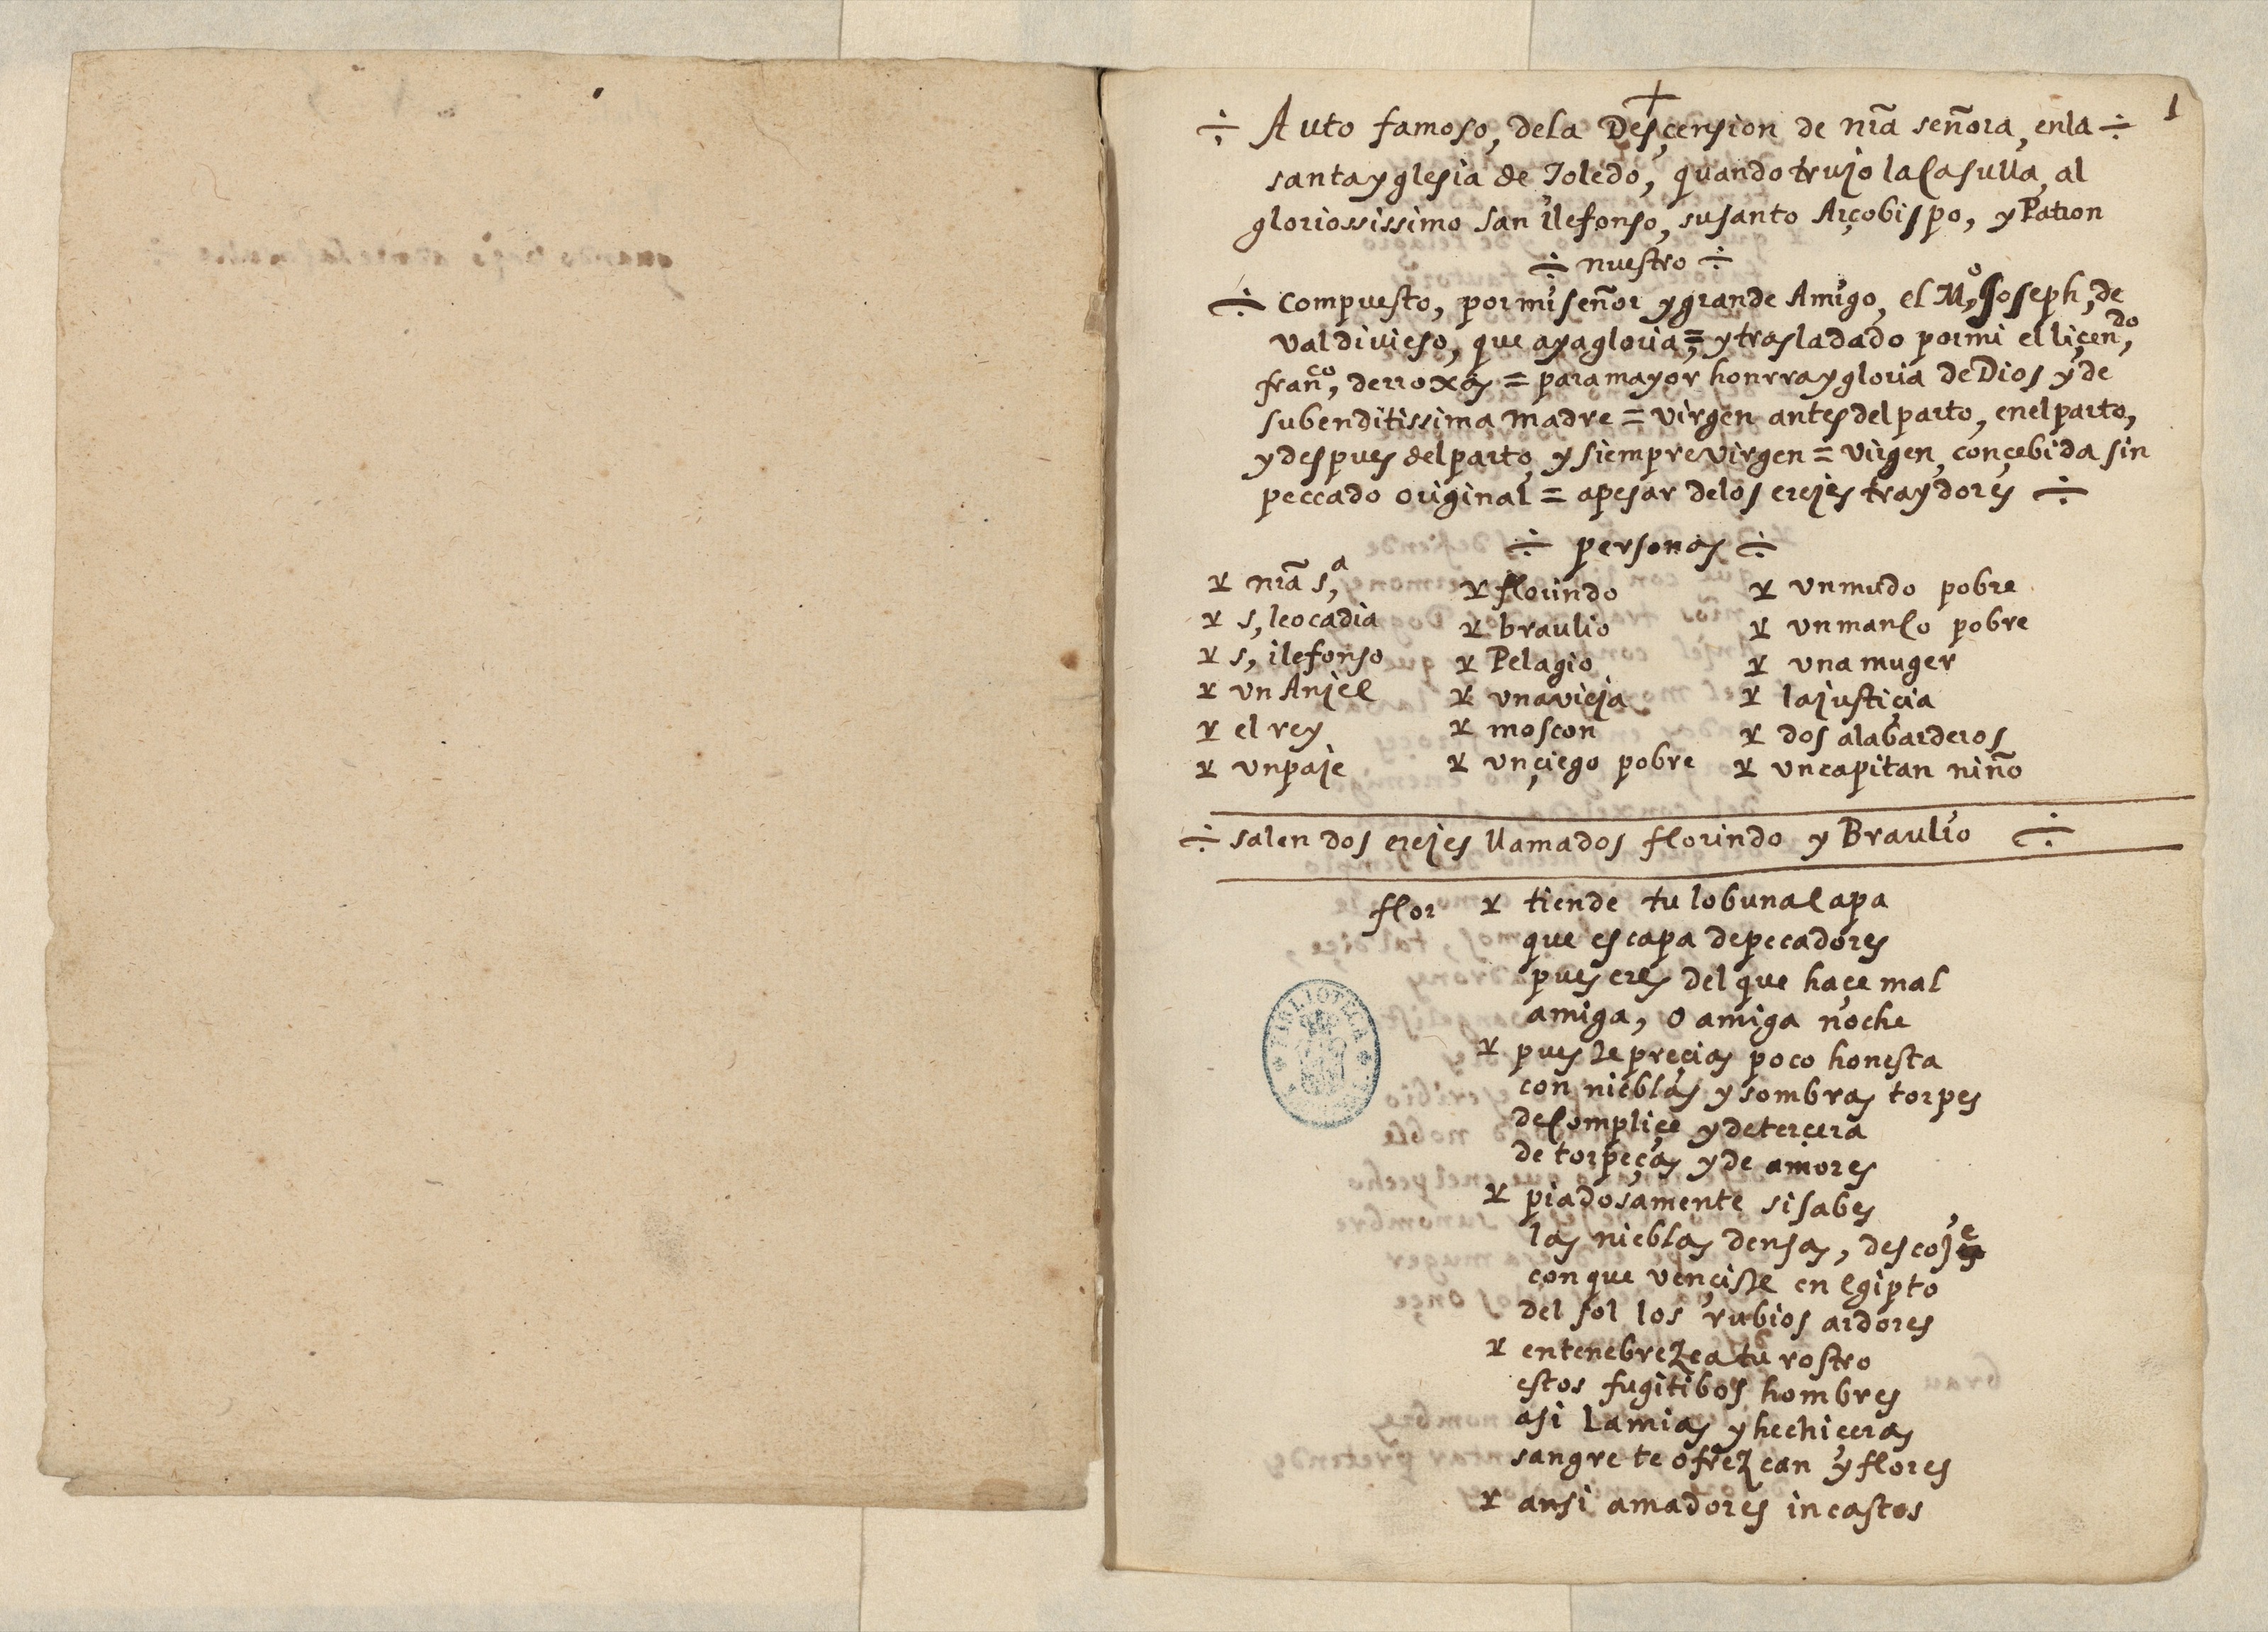 1
÷ Auto famoso, dela Desçension de nr̃a señora, enla ÷
santa yglesia de Toledo, quando trujo la Casulla, al
gloriossissimo san ilefonso, su santo Arçobispo, y Patron
÷ nuestro ÷
÷ Compuesto, por mi señor y grande Amigo, el M,º Joseph, de
valdivieso, que aya gloria = y trasladado por mi el liçen,do
fran,co derroxas = para mayor honrra y gloria de Dios y de
su benditissima madre = virgen antes del parto, en el parto,
y despues del parto, y siempre virgen = virgen, conçebida sin
peccado original = apesar delos erejes traydores ÷
÷ personas ÷
nr̃a s,a
s, leocadia
s, ilefonso
un Anjel
el rey
un paje
florindo
braulio
Pelagio
una vieja
moscon
un çiego pobre
un mudo pobre
un manco pobre
una muger
la justiçia
dos alabarderos
un capitan niño
÷ salen dos erejes llamados florindo y Braulio ÷
flor tiende tu lobuna capa
que es capa de pecadores
pues eres del que haçe mal
amiga, o amiga noche
pues te preçias poco honesta
con nieblas y sombras torpes
de compliçe y de terçera
de torpeças y de amores
piadosamente si sabes
las nieblas densas, descoje
con que vençiste en egipto
del sol los rubios ardores
entenebrezca tu rostro
estos fugitibos hombres
asi Lamias y hechiceras
sangre te ofrezcan y flores
ansi amadores incastos
BIBLIOTECA